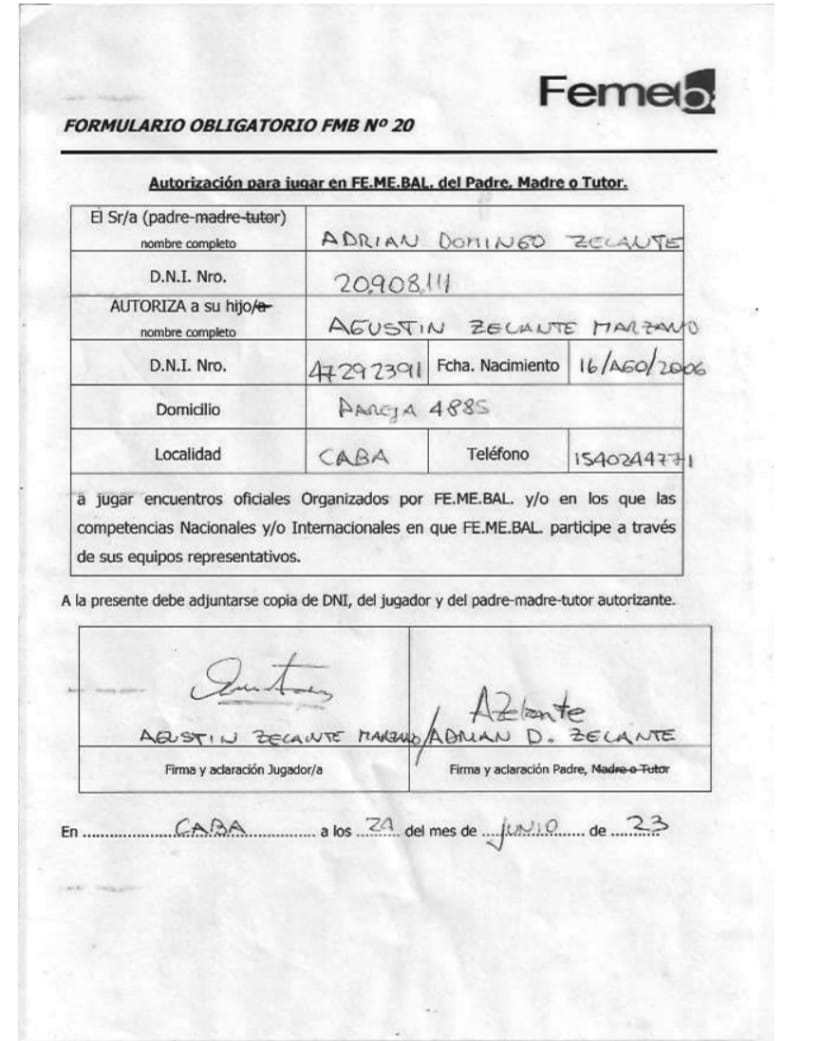 Femeb
FORMULARIO OBLIGATORIO FMB Nº 20
Autorización para jugar en FE.ME.BAL. del Padre, Madre o Tutor.
El Sr/a (padre-madre-tutor)
nombre completo
ADRIAN DOMINGO ZELANTE
D.N.I. Nro.
20.908.111
AUTORIZA a su hijo/a
nombre completo
AGUSTIN ZELANTE MARZANO
D.N.I. Nro.
47292391
Fcha. Nacimiento
16/AGO/2006
Domicilio
PAREJA 4885
Localidad
CABA
Teléfono
1540244771
a jugar encuentros oficiales Organizados por FE.ME.BAL. y/o en los que las
competencias Nacionales y/o Internacionales en que FE.ME.BAL. participe a través
de sus equipos representativos.
A la presente debe adjuntarse copia de DNI, del jugador y del padre-madre-tutor autorizante.
AZelante
AGUSTIN ZELANTE MARZANO/ADRIAN D. ZELANTE
Firma y aclaración Jugador/a
Firma y aclaración Padre, Madre o Tutor
En ..................CABA............... a los ..29.. del mes de ....JUNIO...... de ....23